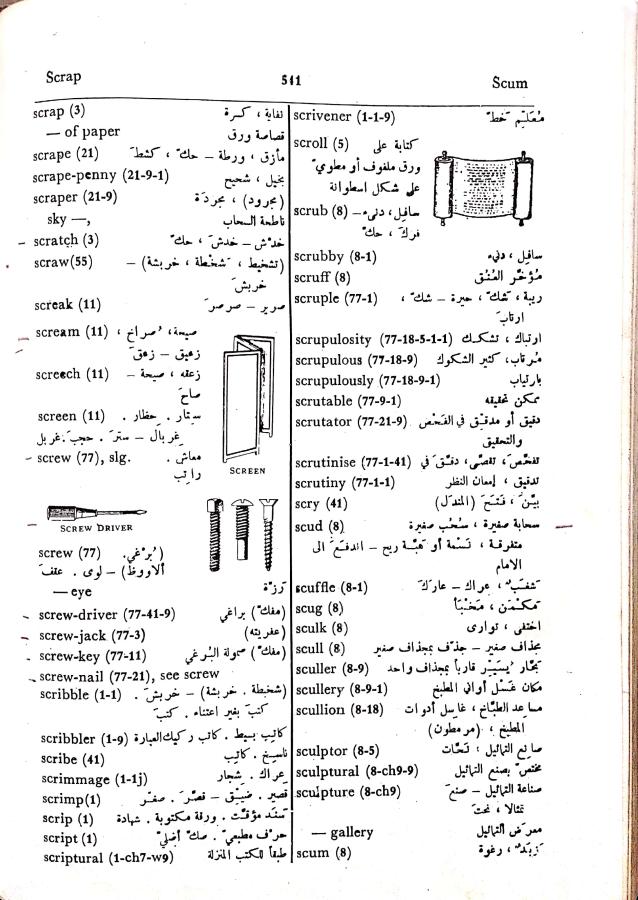 Scrap
541
Scum
scrap (3) نفاية ، كسرة
— of paper قصاصة ورق
scrape (21) مأزق ، ورطة – حك ، كشط
scrape-penny (21-9-1) بخيل ، شحيح
scraper (21-9) (مجرود) ، مجردة
sky —, ناطحة السحاب
scratch (3) خدش – خدش ، حك
scraw(55) (تشخيط ، شخطة ، خربشة) –
خربش
screak (11) صرير – صرصر
scream (11) صيحة ، صراخ ،
زعيق – زعق
screech (11) زعقه ، صيحة –
صاح
screen (11) ستار . حظار .
غربال – ستر . حجب . غربل
screw (77), slg. معاش .
راتب
SCREEN
SCREW DRIVER
screw (77) (برغي .
ألاووظ) – لوى .
— eye رزة
screw-driver (77-41-9) (مفك) براغي
screw-jack (77-3) (عفريته)
screw-key (77-11) (مفك) صمولة البرغي
screw-nail (77-21), see screw
scribble (1-1) (شخبطة . خربشة) – خربش .
كتب بغير اعتناء . كتب
scribbler (1-9) كاتب بسيط . كاتب ركيك العبارة
scribe (41) ناسخ . كاتب
scrimmage (1-1j) عراك . شجار
scrimp(1) قصير . ضيق – قصر . صغر
scrip (1) سند مؤقت . ورقة مكتوبة . شهادة
script (1) حرف مطبعي . صك أصلي
scriptural (1-ch7-w9) طبقاً للكتب المنزلة
scrivener (1-1-9) مُعَلِّم خط
scroll (5) كتابة على
ورق ملفوف أو مطوي
على شكل اسطوانة
scrub (8) سافل ، دنيء –
فرك ، حك
scrubby (8-1) سافل ، دنيء
scruff (8) مؤخر العنق
scruple (77-1) ريبة ، شك ، حيرة – شك ،
ارتاب
scrupulosity (77-18-5-1-1) ارتباك ، تشكك
scrupulous (77-18-9) مرتاب ، كثير الشكوك
scrupulously (77-18-9-1) بارتياب
scrutable (77-9-1) ممكن تحقيقه
scrutator (77-21-9) دقيق أو مدقق في الفحص
والتحقيق
scrutinise (77-1-41) تفحص ، تقصى ، دقق في
scrutiny (77-1-1) تدقيق ، إمعان النظر
scry (41) بين ، فتح (المندل)
scud (8) سحابة صغيرة ، سُحُب صغيرة
متفرقة ، نسمة أو هبة ريح – اندفع الى
الامام
scuffle (8-1) شغب ، عراك – عارك
scug (8) مكمن ، مخبأ
sculk (8) اختفى ، توارى
scull (8) مجذاف صغير – جذف بمجذاف صغير
sculler (8-9) بحار يسير قارباً بمجذاف واحد
scullery (8-9-1) مكان غسل أواني المطبخ
scullion (8-18) مساعد الطباخ ، غاسل أدوات
المطبخ ، (مرمطون)
sculptor (8-5) صانع التماثيل ، نحات
sculptural (8-ch9-9) مختص بصنع التماثيل
sculpture (8-ch9) صناعة التماثيل – صنع
تمثالا ، نحت
— gallery معرض التماثيل
scum (8) زبد ، رغوة